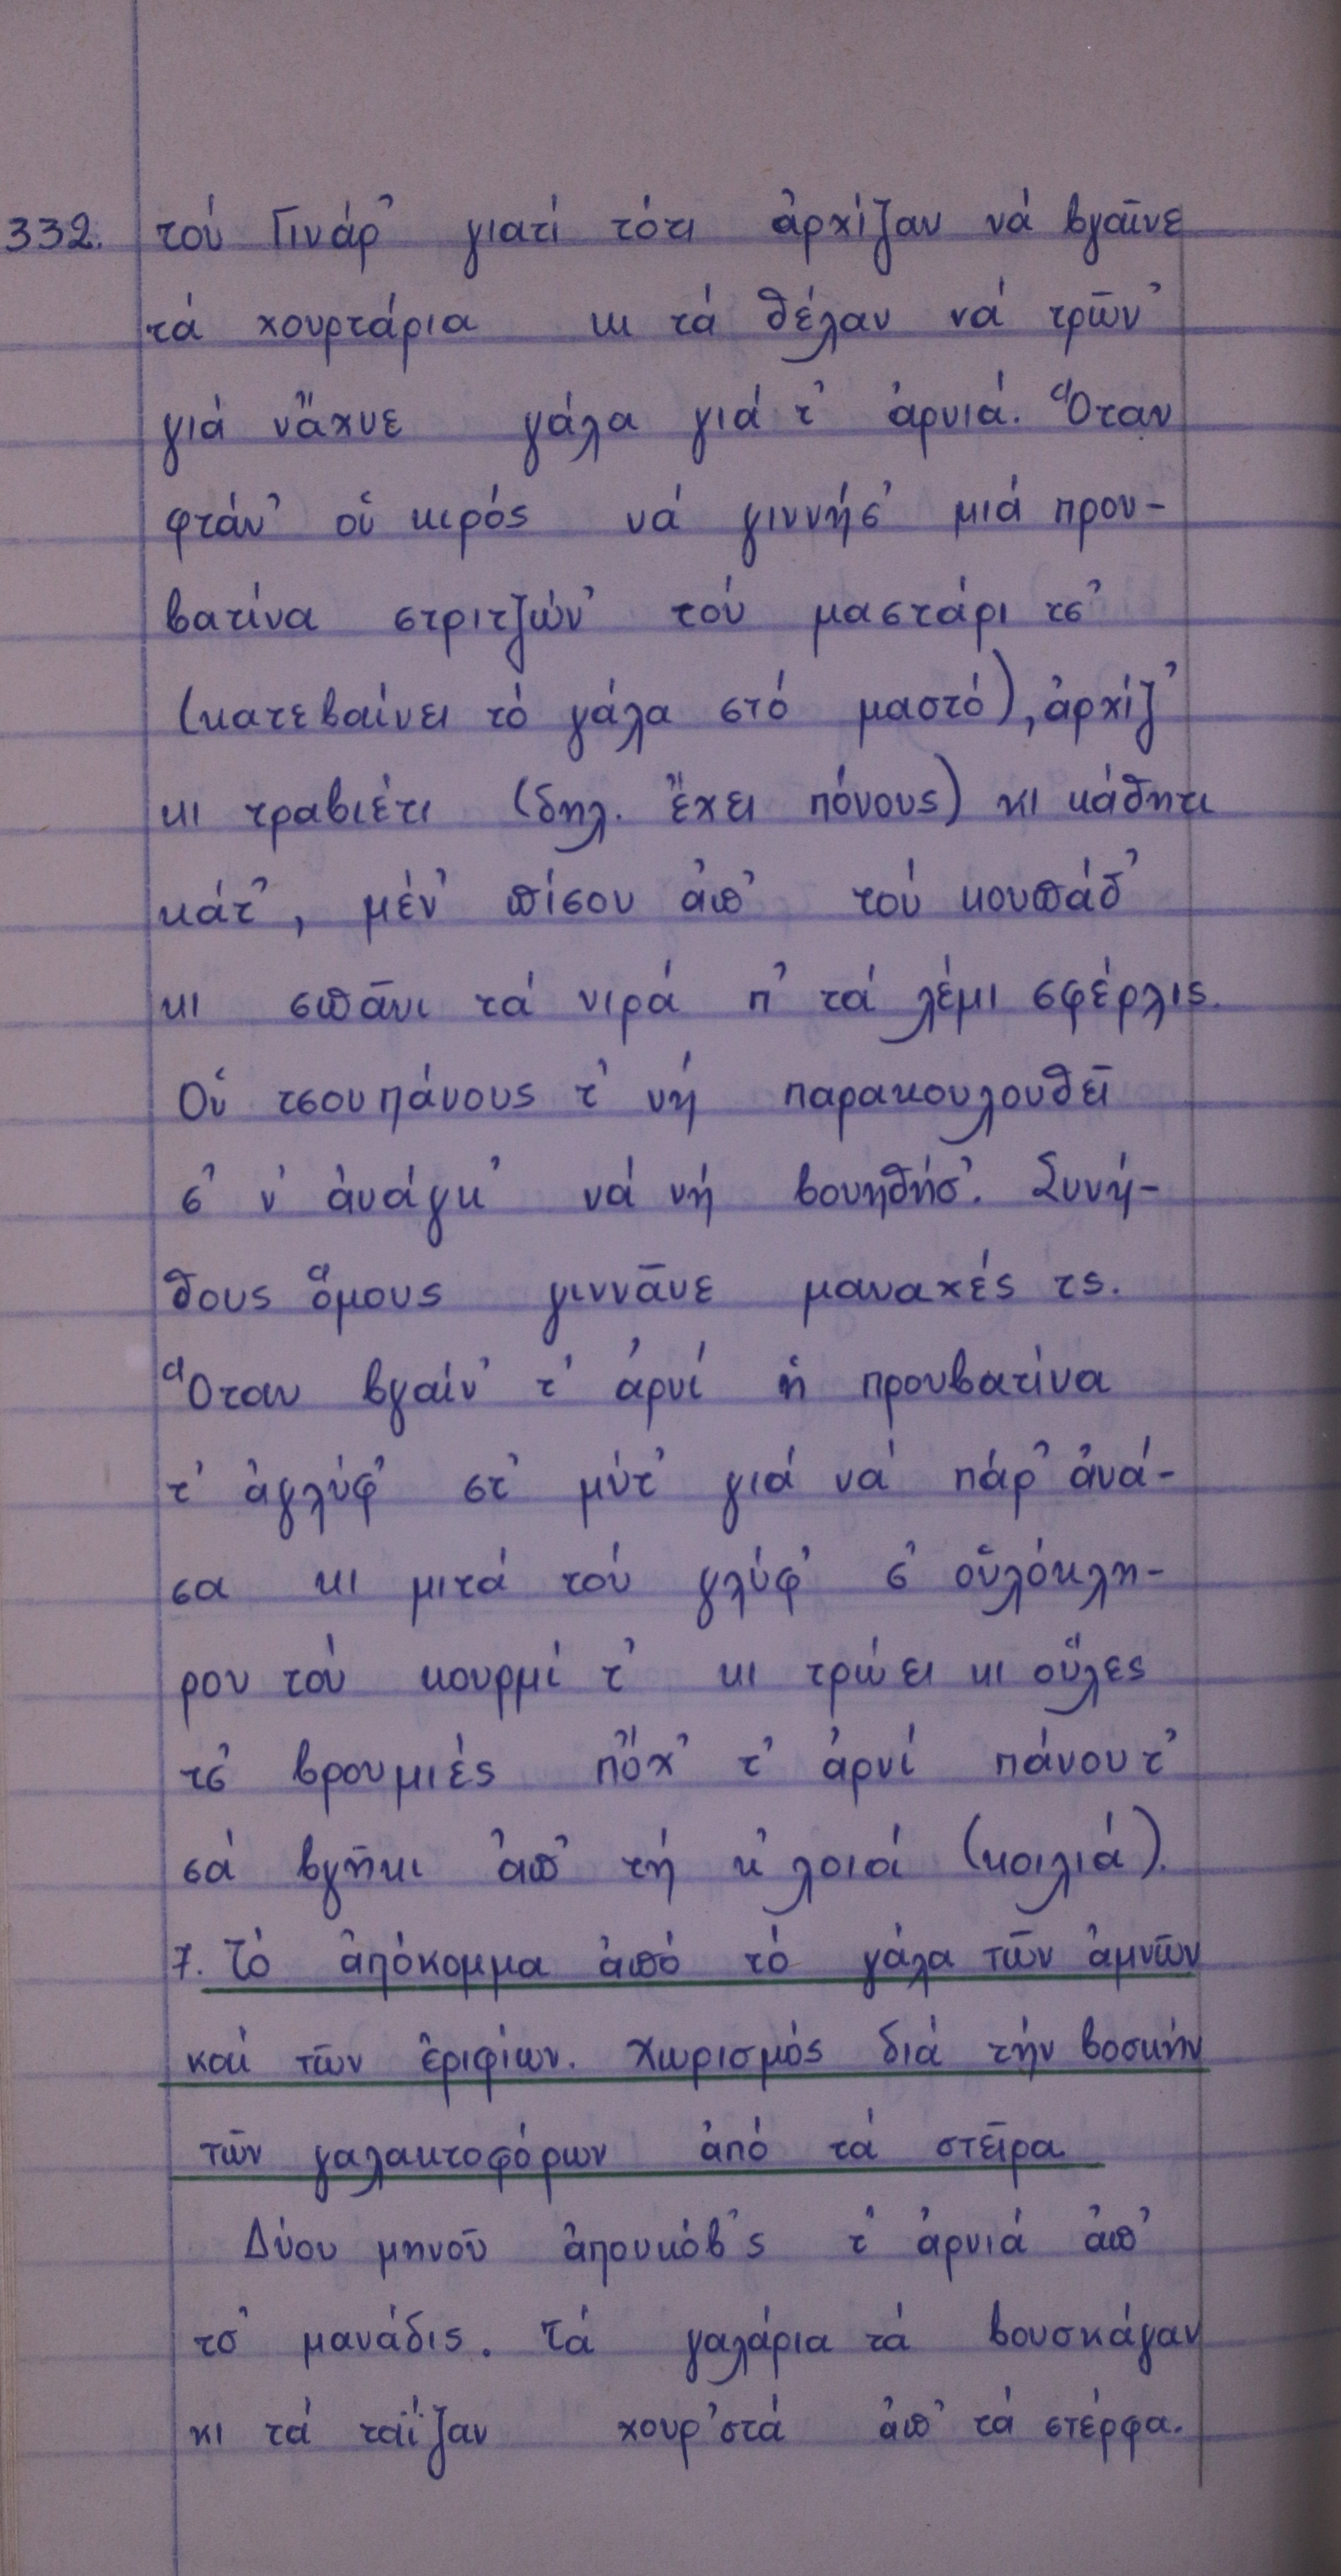 332. τού Γινάρ' γιατί τότι ἀρχίζαν νά βγαῖνε
τά χουρτάρια κι τά θέλαν νά τρῶν'
γιά νἄχνε γάλα γιά τ' ἀρνιά. Ὅταν
φτάν' οὑ κιρός νά γιννήσ' μιά πρου-
βατίνα στριτζών' τού μαστάρι τσ'
(κατεβαίνει τό γάλα στό μαστό), ἀρχίζ'
κι τραβιέτι (δηλ. ἔχει πόνους) κι κάθητι
κάτ', μέν' πίσου ἀπ' τού κουπάδ'
κι σπᾶνι τά νιρά π' τά λέμι σφέρλις.
Οὑ τσουπάνους τ' νή παρακουλουθεῖ
σ' ν' ἀνάγκ' νά νή βουηθήσ'. Συνή-
θους ὅμους γιννᾶνε μαναχές τς.
Ὅταν βγαίν' τ' ἀρνί ἡ προυβατίνα
τ' ἀγλύφ' στ' μύτ' γιά νά πάρ' ἀνά-
σα κι μιτά τού γλύφ' σ' οὑλόκλη-
ρου τού κουρμί τ' κι τρώει κι οὕλες
τσ' βρουμιές πὄχ' τ' ἀρνί πάνου τ'
σά βγῆκι ἀπ' τή κ'λοιά (κοιλιά).
7. Τό ἀπόκομμα ἀπό τό γάλα τῶν ἀμνῶν
καί τῶν ἐριφίων. Χωρισμός διά τήν βοσκήν
τῶν γαλακτοφόρων ἀπό τά στεῖρα
Δύου μηνοῦ ἀπουκόβ'ς τ' ἀρνιά ἀπ'
τσ' μανάδις. Τά γαλάρια τά βουσκάγαν
κι τά ταΐζαν χουρ'στά ἀπ' τά στέρφα.